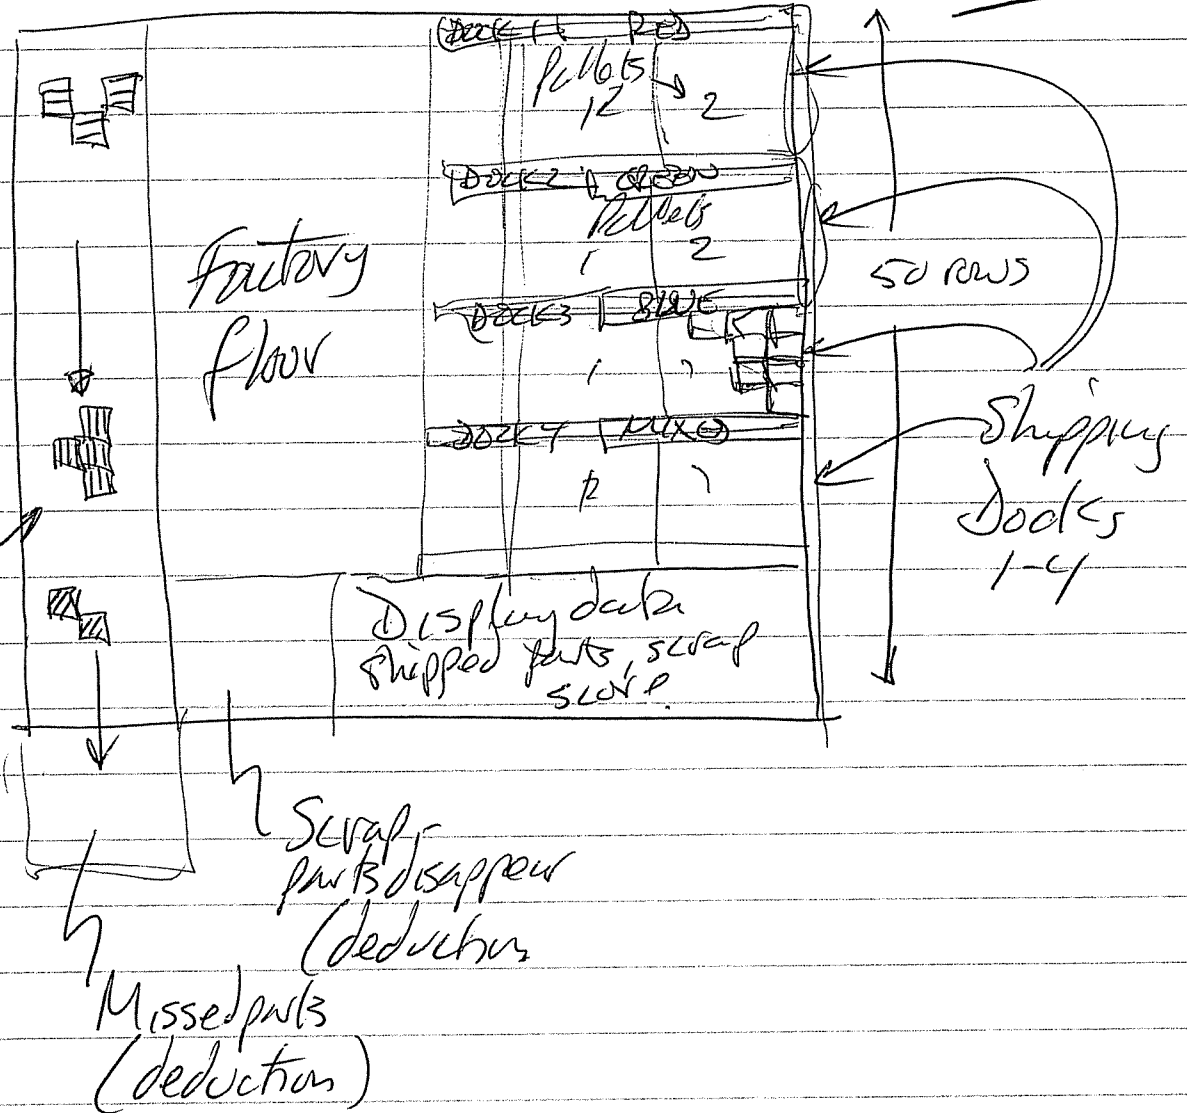 DOCK 1 RED
Pallets
1 2
DOCK 2 GREEN
Pallets
1 2
DOCK 3 BLUE
DOCK 4 MIXED
Factory
floor
50 rows
Shipping
Docks
1-4
Display data
shipped parts, scrap
score.
Scrap,
parts disappear
(deduction
Missed parts
(deduction)